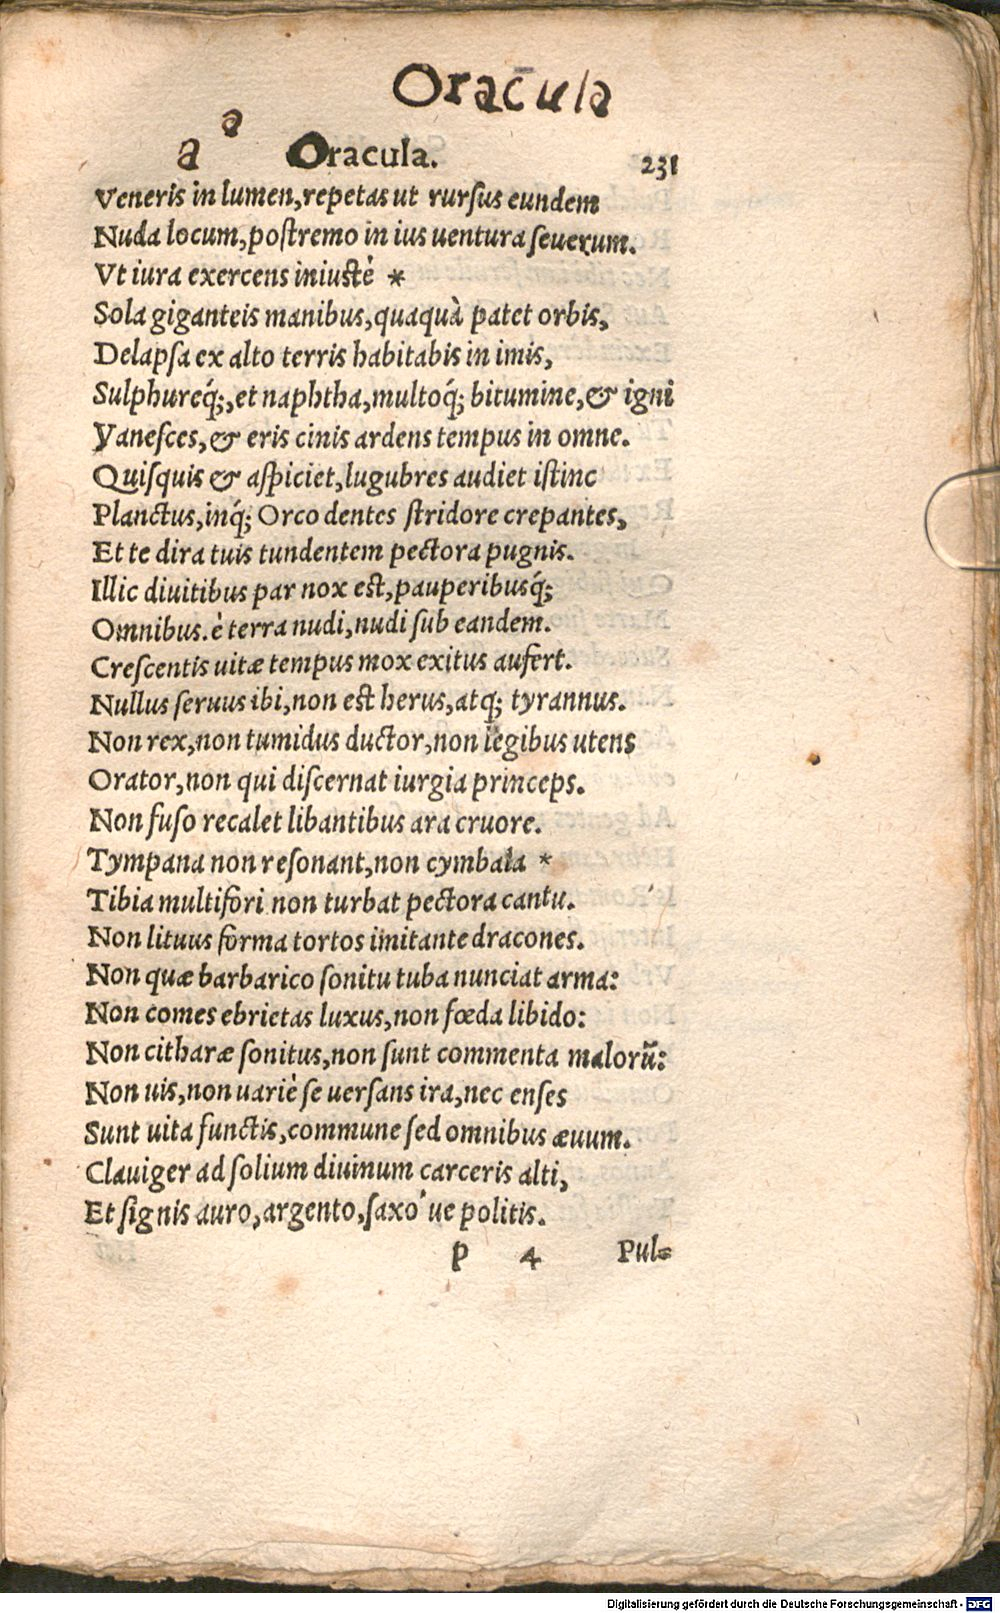 Oracula
a
a Oracula. 231
Veneris in lumen, repetas ut rursus eundem
Nuda locum, postremo in ius uentura seuerum.
Vt iura exercens iniustè *
Sola giganteis manibus, quaquà patet orbis,
Delapsa ex alto terris habitabis in imis,
Sulphureq́;, et naphtha, multoq́; bitumine, & igni
Vanesces, & eris cinis ardens tempus in omne.
Quisquis & aspiciet, lugubres audiet istinc
Planctus, inq́; Orco dentes stridore crepantes,
Et te dira tuis tundentem pectora pugnis.
Illic diuitibus par nox est, pauperibusq́;
Omnibus. è terra nudi, nudi sub eandem.
Crescentis uitæ tempus mox exitus aufert.
Nullus seruus ibi, non est herus, atq; tyrannus.
Non rex, non tumidus ductor, non legibus utens
Orator, non qui discernat iurgia princeps.
Non fuso recalet libantibus ara cruore.
Tympana non resonant, non cymbala *
Tibia multifori non turbat pectora cantu.
Non lituus forma tortos imitante dracones.
Non quæ barbarico sonitu tuba nunciat arma:
Non comes ebrietas luxus, non fœda libido:
Non citharæ sonitus, non sunt commenta malorũ:
Non uis, non uariè se uersans ira, nec enses
Sunt uita functis, commune sed omnibus æuum.
Clauiger ad solium diuinum carceris alti,
Et signis auro, argento, saxo' ue politis.
p 4 Pul=
Digitalisierung gefördert durch die Deutsche Forschungsgemeinschaft - DFG